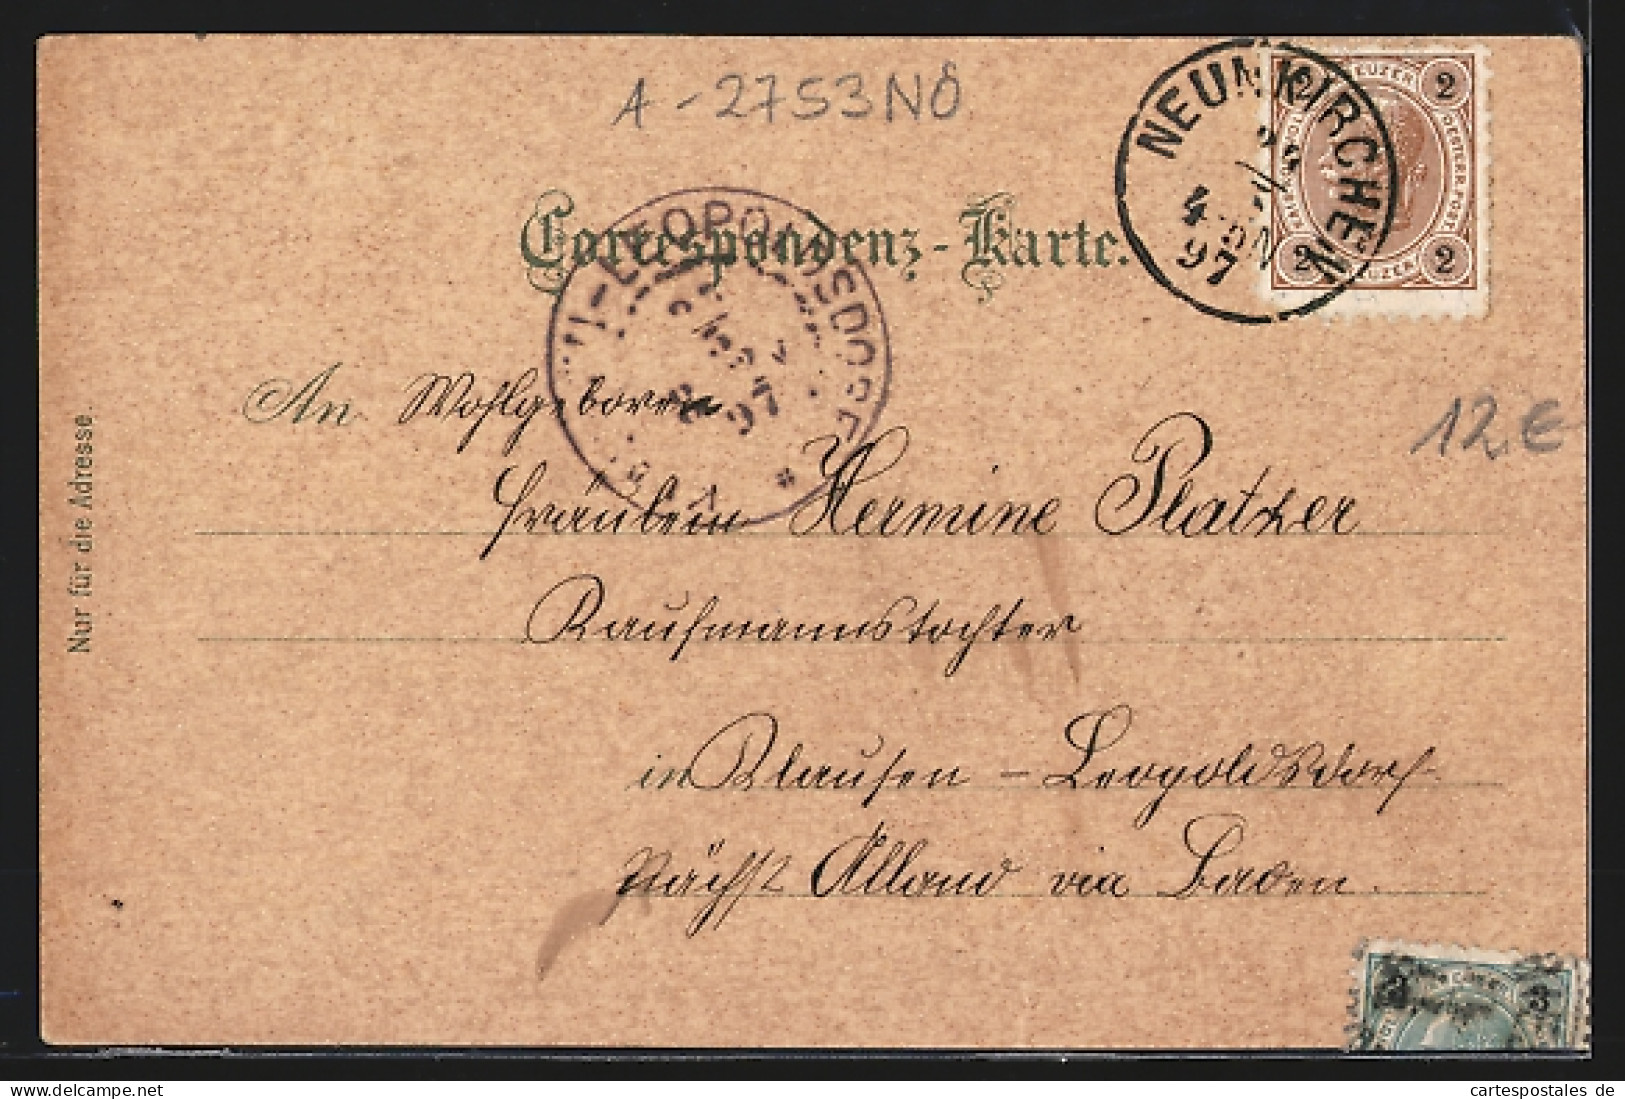 A-2753NÖ
NEUNKIRCHEN
97
2 2
2 2
OESTERR. POST.
Correspondenz-Karte.
LEOPOLDSDORF *
97
12.€
An Wohlgeboren
Fräulein Hermine Platzer
Kaufmannstochter
in Klausen – Leopoldsdorf
Nächst Alland via Baden.
Nur für die Adresse
3
Delcampe.net
cartespostales de